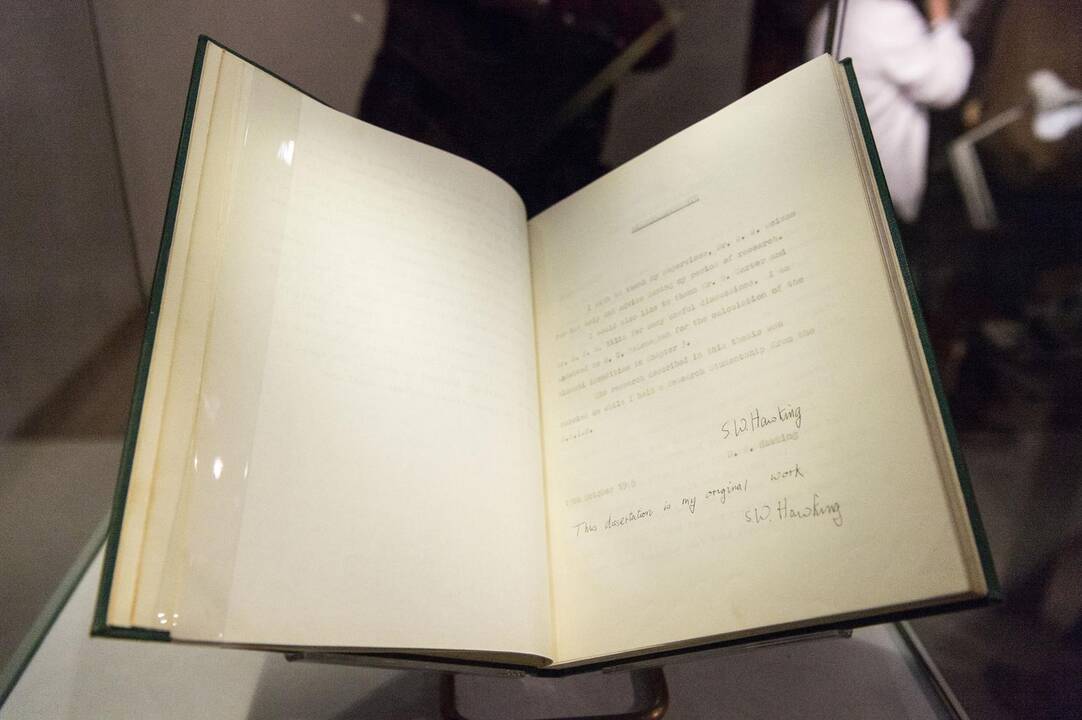 I wish to thank my supervisor, Dr. D. W. Sciama
for his help and advice during my period of research.
I would also like to thank Mr. B. Carter and
Mr. G. F. R. Ellis for many useful discussions. I am
indebted to R. G. McLenaghan for the calculation of the
Bianchi identities in Chapter 3.
The research described in this thesis was
carried on while I held a research studentship from the
S.W.Hawking
S. W. Hawking
October 1965
This dissertation is my original work
S.W. Hawking